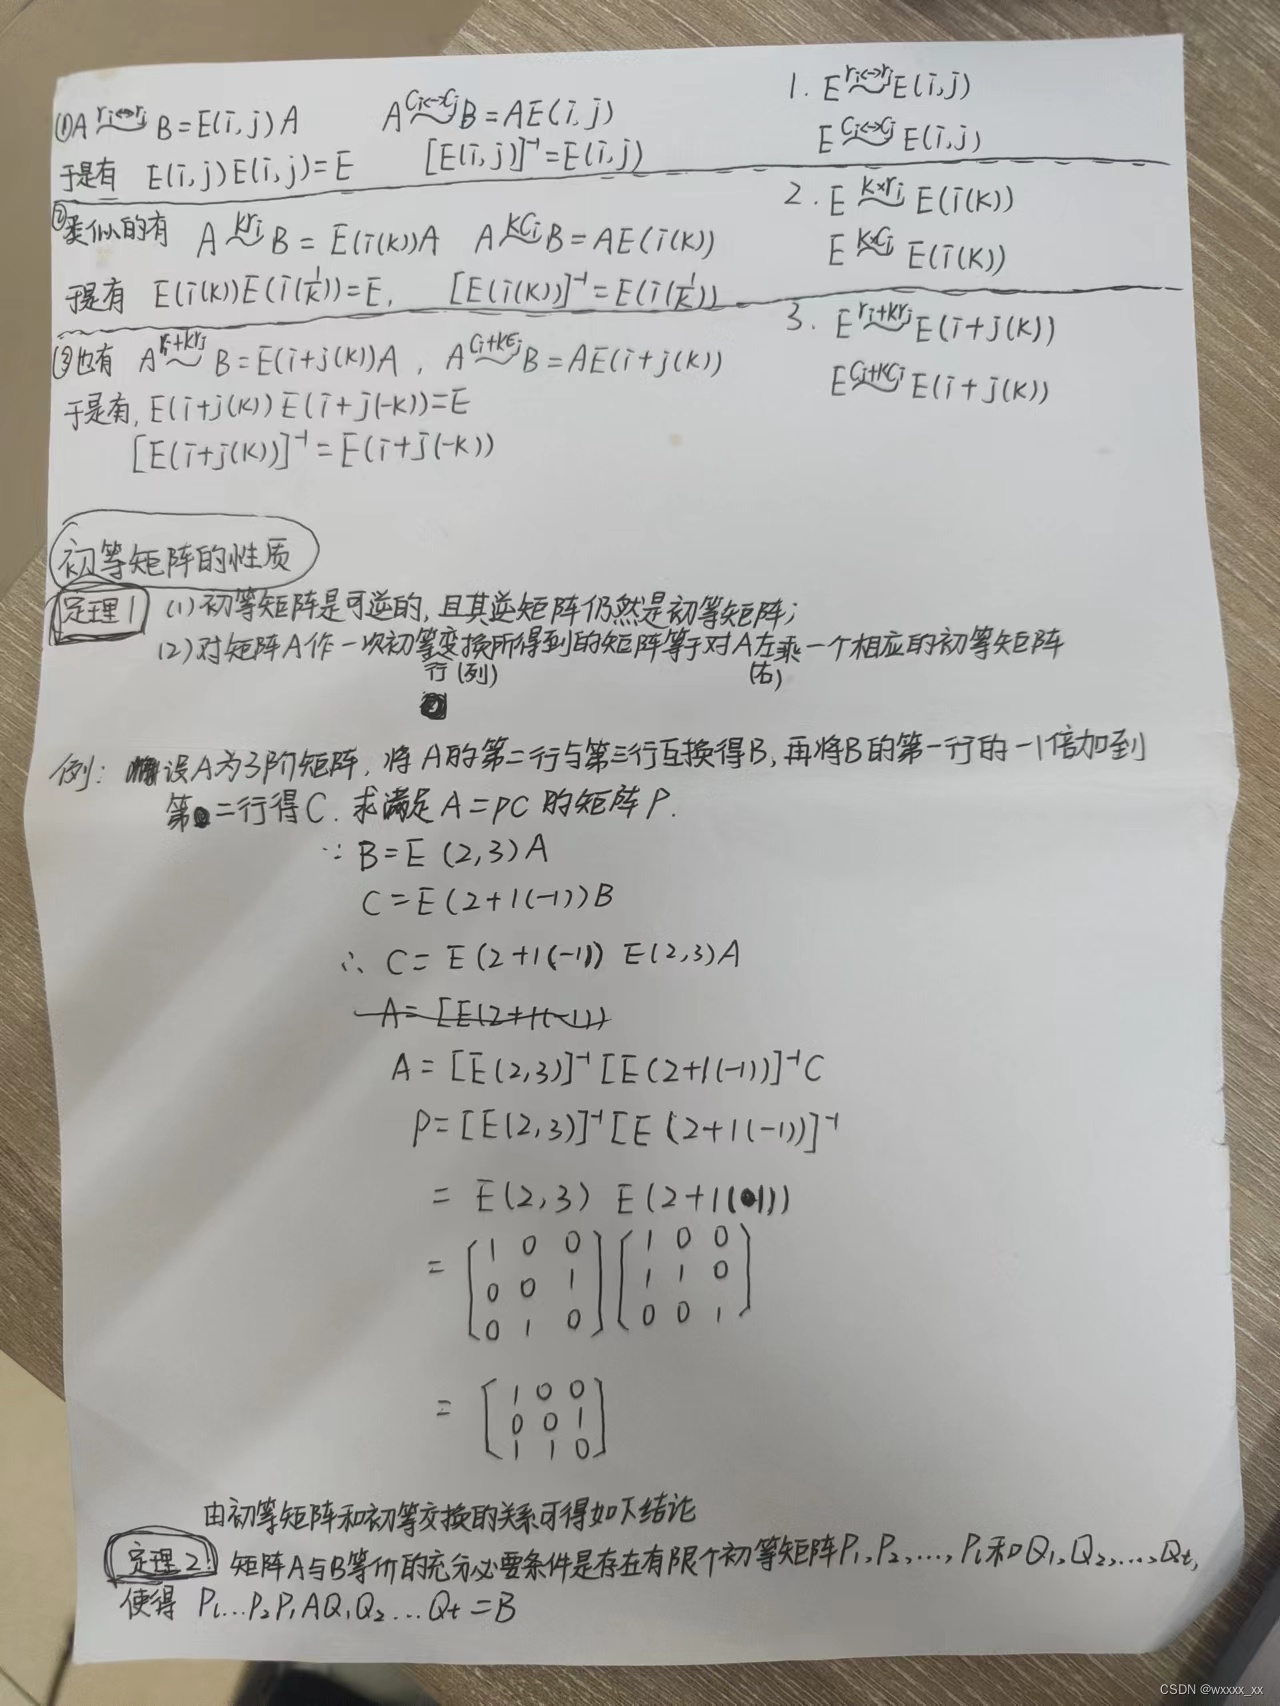 ①A ri↔rj~ B=E(i,j)A A ci↔cj~ B=AE(i,j)
于是有 E(i,j)E(i,j)=E [E(i,j)]⁻¹=E(i,j)
1. E ri↔rj~ E(i,j)
E ci↔cj~ E(i,j)
②类似的有 A kri~ B=E(i(k))A A kci~ B=AE(i(k))
于是有 E(i(k))E(i(1/k))=E, [E(i(k))]⁻¹=E(i(1/k))
2. E k×ri~ E(i(k))
E k×ci~ E(i(k))
③也有 A ri+krj~ B=E(i+j(k))A , A ci+kcj~ B=AE(i+j(k))
于是有, E(i+j(k)) E(i+j(-k))=E
[E(i+j(k))]⁻¹=E(i+j(-k))
3. E ri+krj~ E(i+j(k))
E ci+kcj~ E(i+j(k))
初等矩阵的性质
定理1 (1)初等矩阵是可逆的,且其逆矩阵仍然是初等矩阵;
(2)对矩阵A作一次初等变换所得到的矩阵等于对A左乘一个相应的初等矩阵
行(列) (右)
例: 设A为3阶矩阵,将A的第二行与第三行互换得B,再将B的第一行的-1倍加到
第二行得C.求满足A=PC的矩阵P.
∵ B=E(2,3)A
C=E(2+1(-1))B
∴ C=E(2+1(-1)) E(2,3)A
A=[E(2+1(-1))
A=[E(2,3)]⁻¹[E(2+1(-1))]⁻¹C
P=[E(2,3)]⁻¹[E(2+1(-1))]⁻¹
= E(2,3) E(2+1(1))
= [1 0 0 [1 0 0
0 0 1 1 1 0
0 1 0] 0 0 1]
= [1 0 0
0 0 1
1 1 0]
由初等矩阵和初等交换的关系可得如下结论
定理2: 矩阵A与B等价的充分必要条件是存在有限个初等矩阵P₁,P₂,...,Pₗ和Q₁,Q₂,...,Qt,
使得 Pₗ...P₂P₁AQ₁Q₂...Qt=B
CSDN @wxxxx_xx